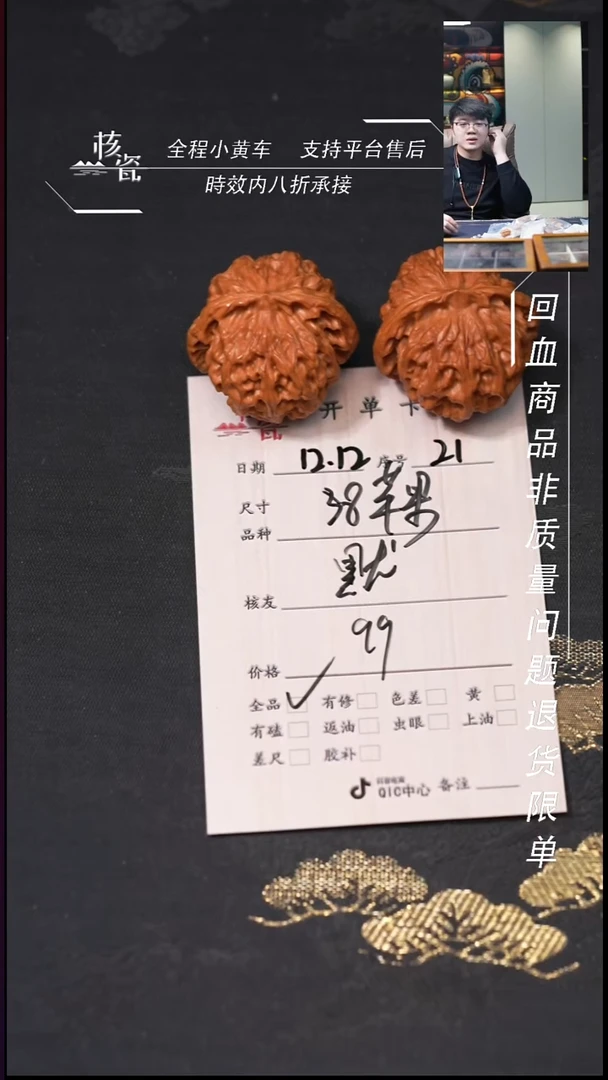 核瓷
全程小黄车 支持平台售后
時效内八折承接
回血商品非质量问题退货限单
开单卡
日期 12.12 序号 21
尺寸 38苹果
品种
默
核友
99
价格
全品 有修 色差 黄
有磕 返油 虫眼 上油
差尺 胶补
QIC中心 备注